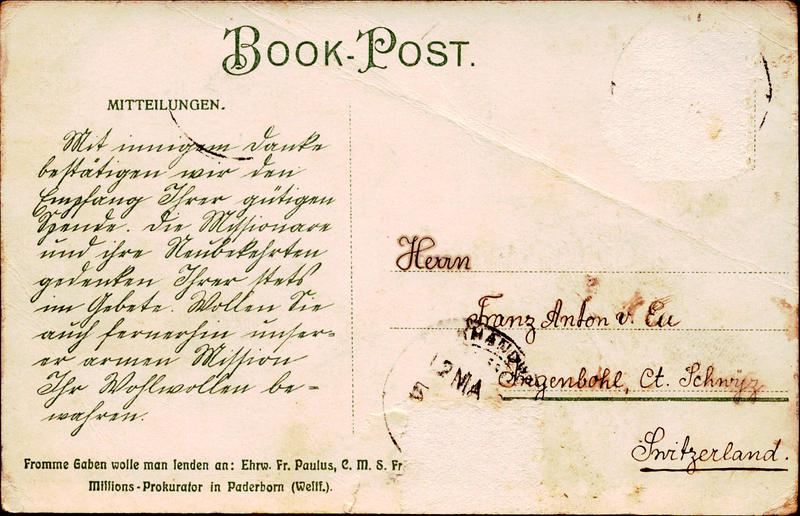 BOOK-POST.
MITTEILUNGEN.
Mit innigem Danke
bestätigen wir den
Empfang Ihrer gütigen
Spende. Die Missionare
und ihre Neubekehrten
gedenken Ihrer stets
im Gebete. Wollen Sie
auch fernerhin unser-
er armen Mission
Ihr Wohlwollen be-
wahren.
Fromme Gaben wolle man senden an: Ehrw. Fr. Paulus, C. M. S. Fr
Missions-Prokurator in Paderborn (Westf.).
Herrn
Franz Anton v. Eu
Ingenbohl, Ct. Schwyz
Switzerland.
MAND
12 MA